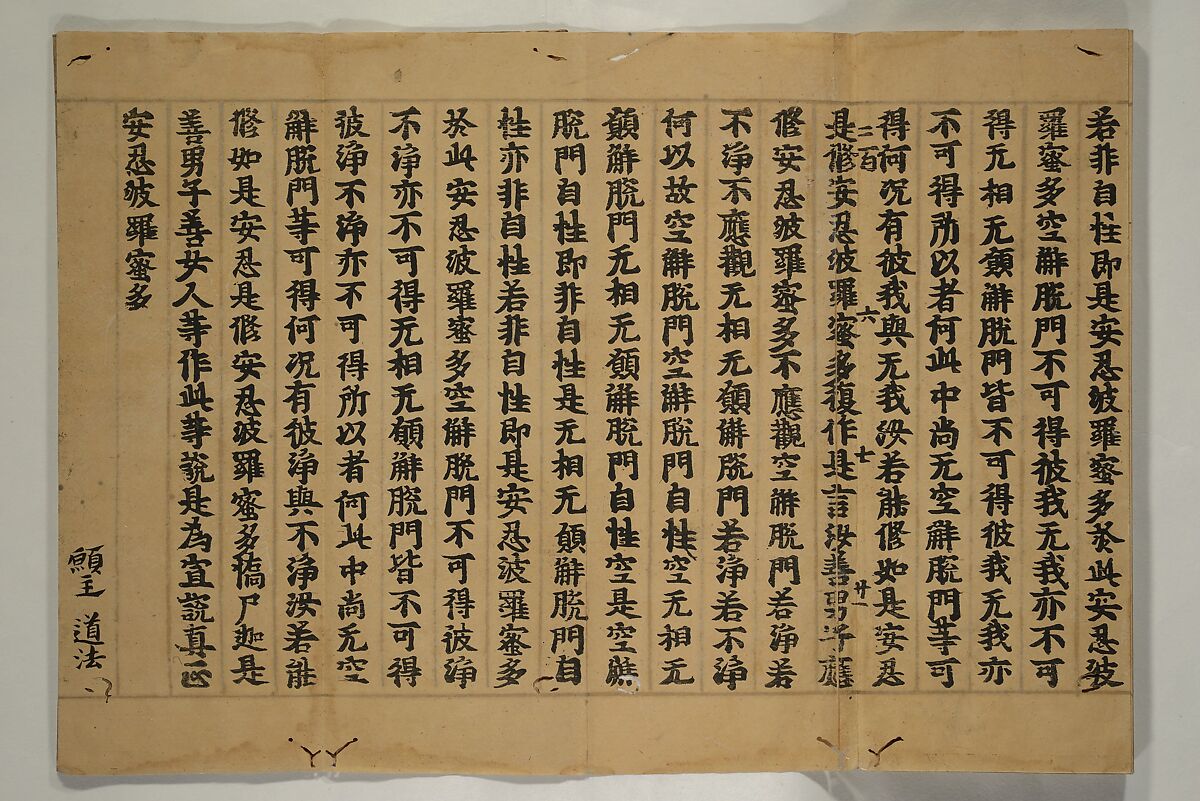 若非自性即是安忍波羅蜜多於此安忍波
羅蜜多空解脫門不可得彼我无我亦不可
得无相无願解脫門皆不可得彼我无我亦
不可得所以者何此中尚无空解脫門等可
得何況有彼我與无我汝若能修如是安忍
二百 六 七 廿一
是修安忍波羅蜜多復作是言汝善男子應
修安忍波羅蜜多不應觀空解脫門若淨若
不淨不應觀无相无願解脫門若淨若不淨
何以故空解脫門空解脫門自性空无相无
願解脫門无相无願解脫門自性空是空解
脫門自性即非自性是无相无願解脫門自
性亦非自性若非自性即是安忍波羅蜜多
於此安忍波羅蜜多空解脫門不可得彼淨
不淨亦不可得无相无願解脫門皆不可得
彼淨不淨亦不可得所以者何此中尚无空
解脫門等可得何況有彼淨與不淨汝若能
修如是安忍是修安忍波羅蜜多憍尸迦是
善男子善女人等作此等說是為宣說真正
安忍波羅蜜多
願主 道法